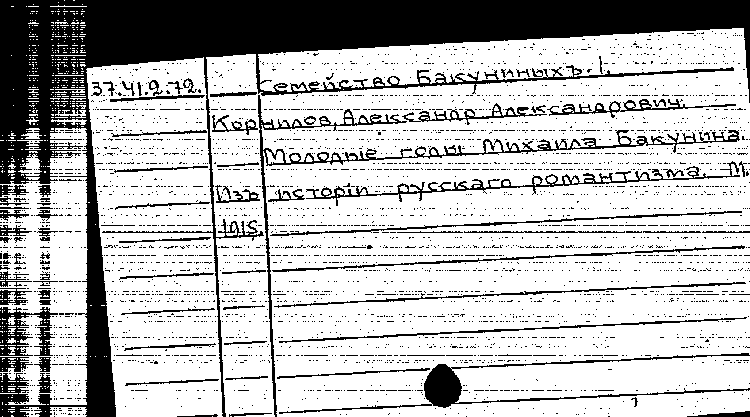 37.41.2.72. Семейство Бакуниныхъ. I.
Корнилов, Александр Александрович.
Молодые годы Михаила Бакунина.
Изъ исторіи русскаго романтизма. М.
1915.